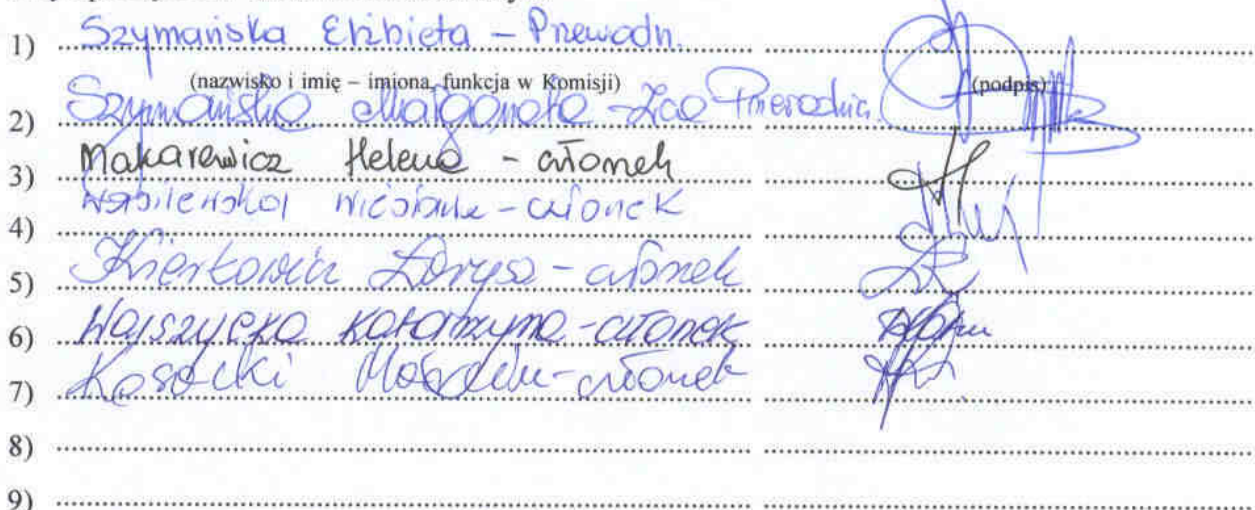 1) Szymańska Elżbieta – Przewodn.
(nazwisko i imię – imiona, funkcja w Komisji) (podpis)
2) Szymańska Małgorzata - Zca Przewodnic.
3) Makarewicz Helena - członek
4) Wiesława - członek
5) Larysa - członek
6) Wajszycka Katarzyna - członek
7) Kosecki - członek
8)
9)